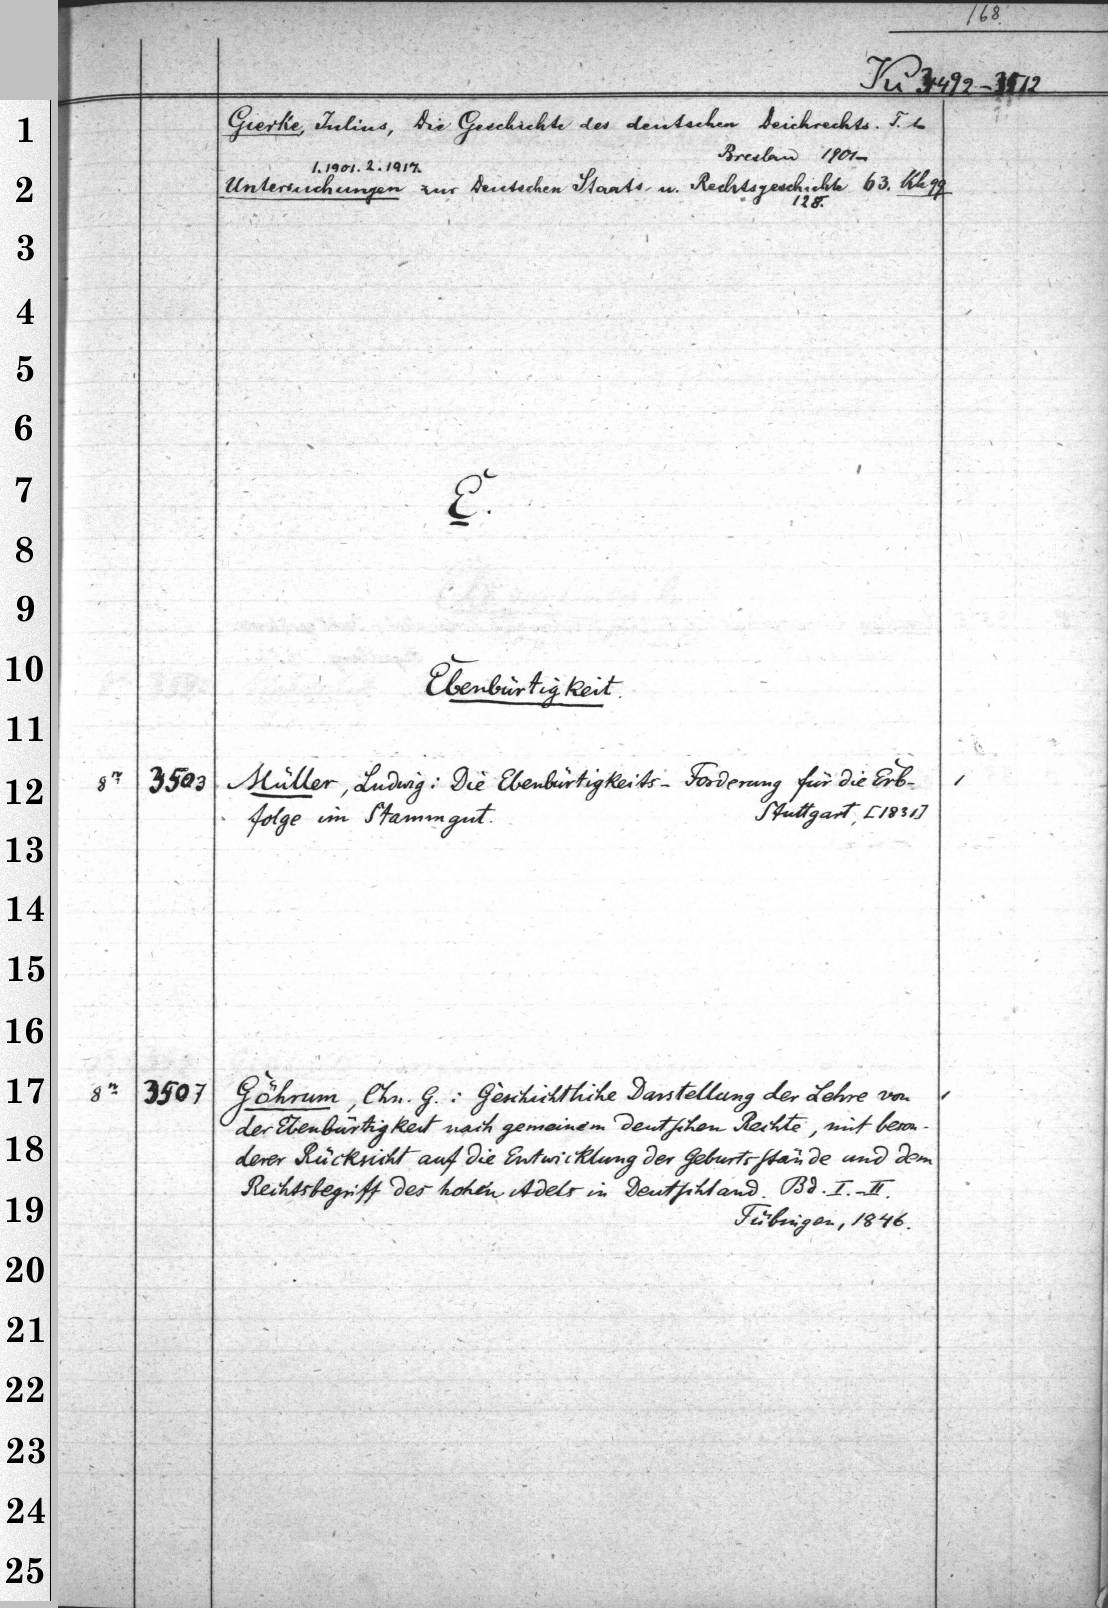 168.
Ku 3492-3512
1
Gierke, Julius, Die Geschichte des deutschen Deichrechts. T. 1-
Breslau 1901-
1. 1901. 2. 1917.
2
Untersuchungen zur Deutschen Staats- u. Rechtsgeschichte 63.
128.
3
4
5
6
7
E.
8
9
10
Ebenbürtigkeit.
11
12
8° 3503 Müller, Ludwig: Die Ebenbürtigkeits-Forderung für die Erb-
folge im Stammgut. Stuttgart, [1831]
13
14
15
16
17
8° 3507 Göhrum, Chn. G.: Geschichtliche Darstellung der Lehre von
der Ebenbürtigkeit nach gemeinem deutschen Rechte, mit beson-
18
derer Rücksicht auf die Entwicklung der Geburtsstände und dem
Rechtsbegriff des hohen Adels in Deutschland. Bd. I.-II.
19
Tübingen, 1846.
20
21
22
23
24
25